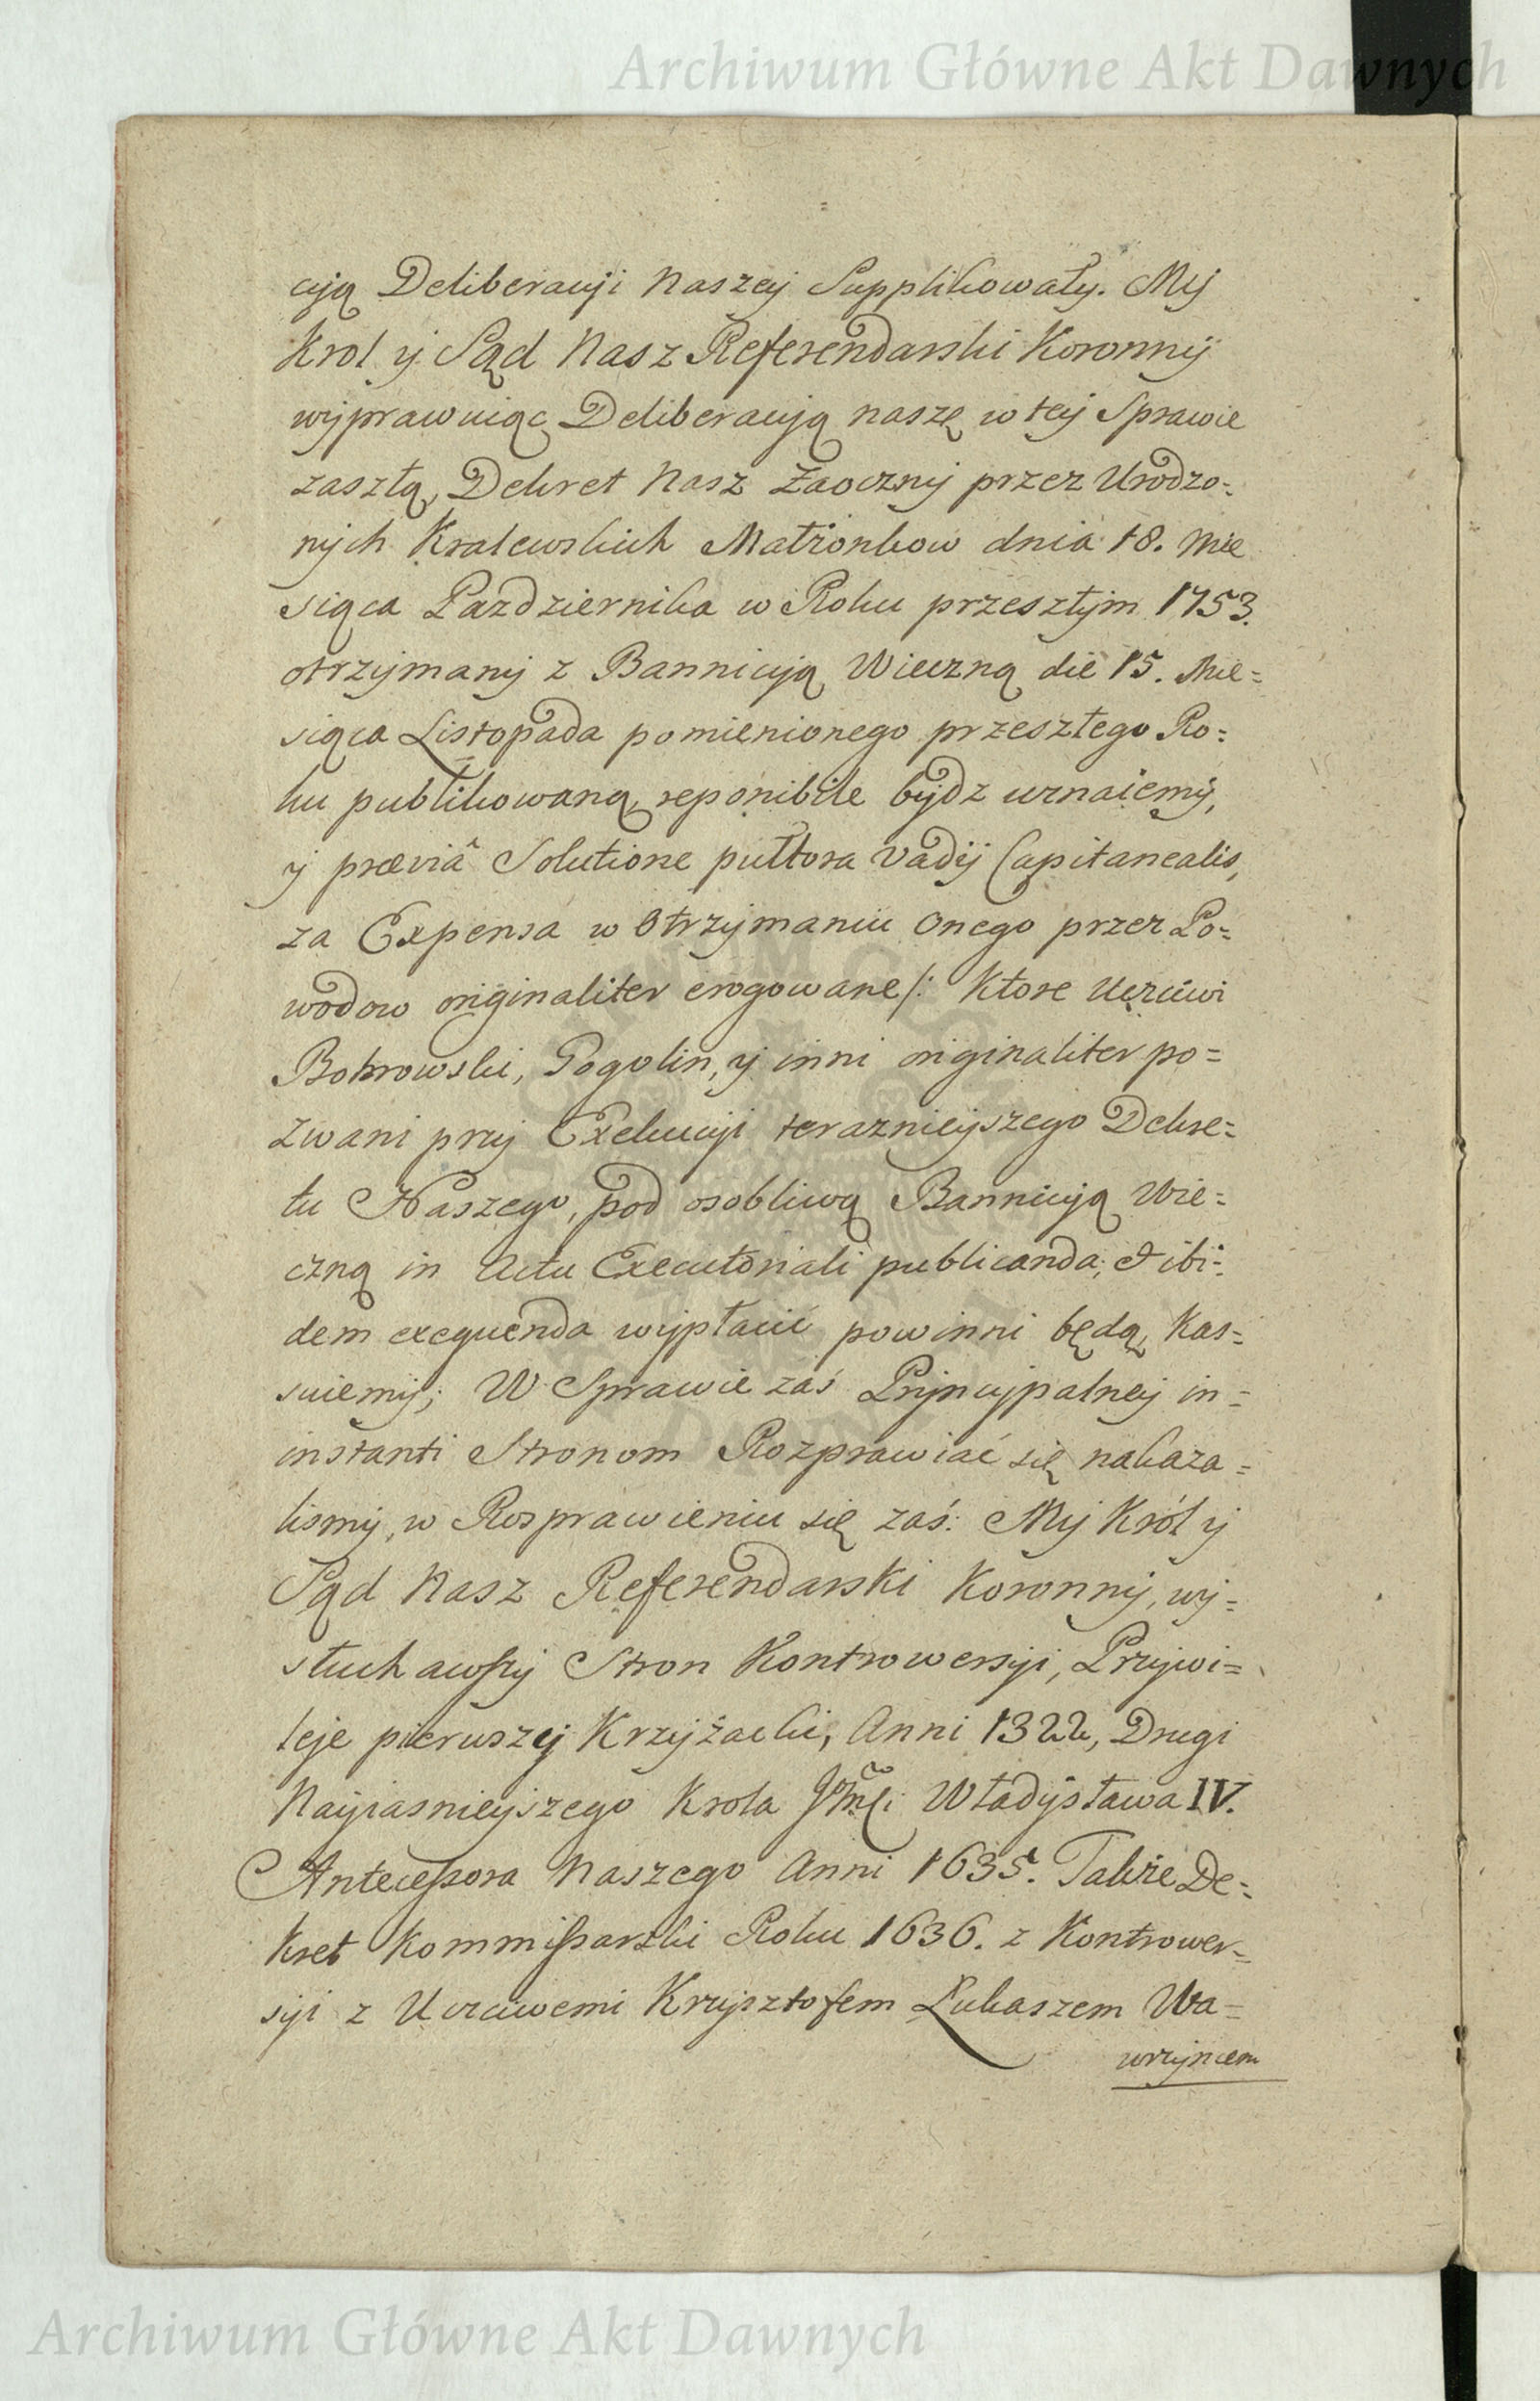 Archiwum Główne Akt Dawnych
cyją Deliberacyi Naszey Supplikowały. My
Krol y Sąd Nasz Referendarski Koronny
wyprawuiąc Deliberacyją naszę w tey Sprawie
zaszłą, Dekret Nasz Zaoczny przez Urodzo=
nych Kralewskich Małżonkow dnia 18. Mie
siąca Pazdziernika w Roku przeszłym 1753.
otrzymany z Bannicyją Wieczną die 15. Mie=
siąca Listopada pomienionego przeszłego Ro=
ku publikowaną, reponibile bydz uznaiemy,
y præviâ Solutione pułtora Vadij Capitanealis,
za Expensa w Otrzymaniu Onego przez Po=
wodow originaliter erogowane /: Ktore Uczciwi
Bobrowski, Gogolin, y inni originaliter po=
zwani przy Exekucyi teraznieyszego Dekre=
tu Naszego, pod osobliwą Bannicyją Wie=
czną in Actu Executoriali publicanda, & ibi=
dem exequenda wypłacić powinni będą, Kas=
suiemy; W Sprawie zaś Pryncypalney in=
instanti Stronom Rozprawiać się nakaza=
lismy, w Rosprawieniu się zaś: My Król y
Sąd Nasz Referendarski Koronny, wy=
słuchawszy Stron Kontrowersyi, Przywi=
leje pierwszy Krzyżacki, Anni 1322, Drugi
Nayiasnieyszego Krola JMści Władysława IV.
Antecessora Naszego Anni 1635. Także De=
kret Kommissarski Roku 1636. z Kontrower=
syi z Uczciwemi Krzysztofem Łukaszem Wa=
wrzyncem
Archiwum Główne Akt Dawnych